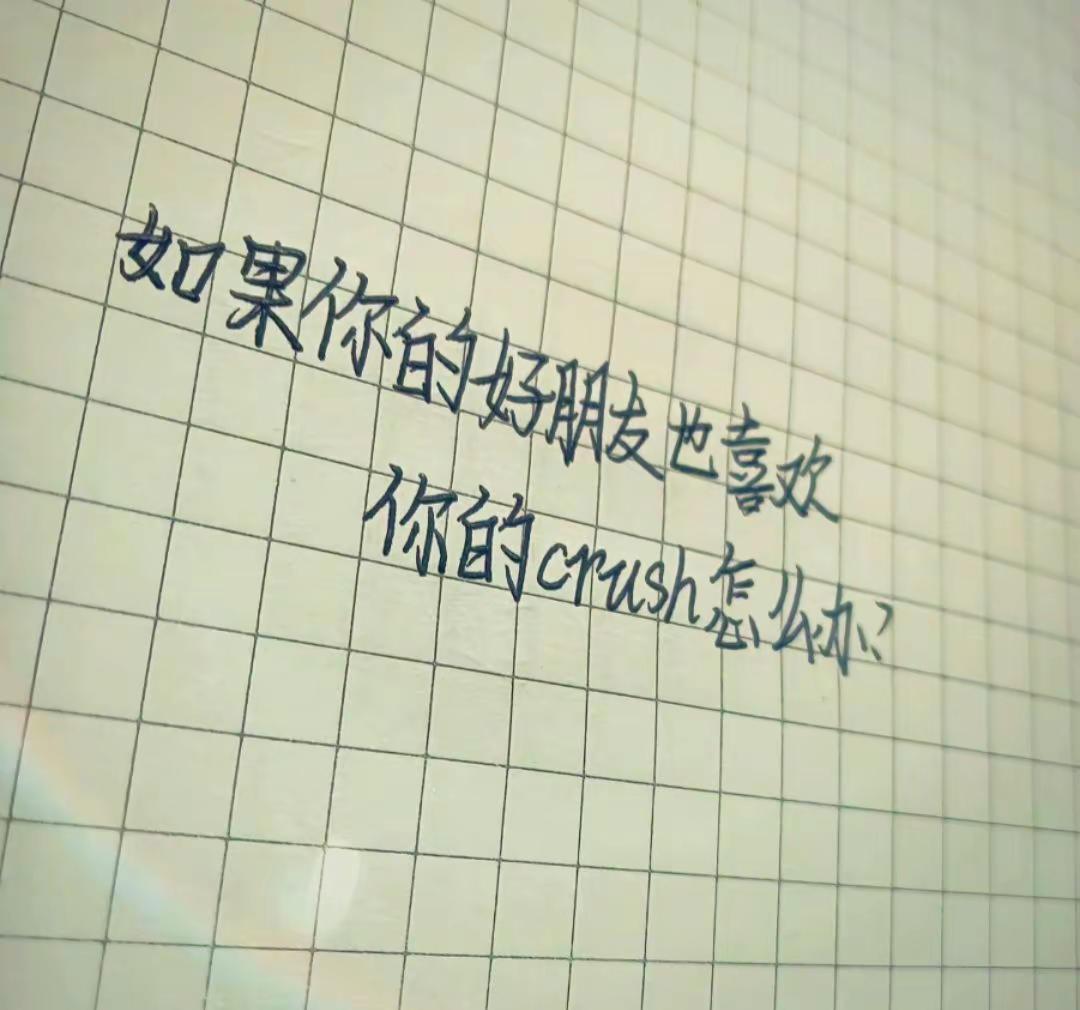 如果你的好朋友也喜欢
你的crush怎么办?